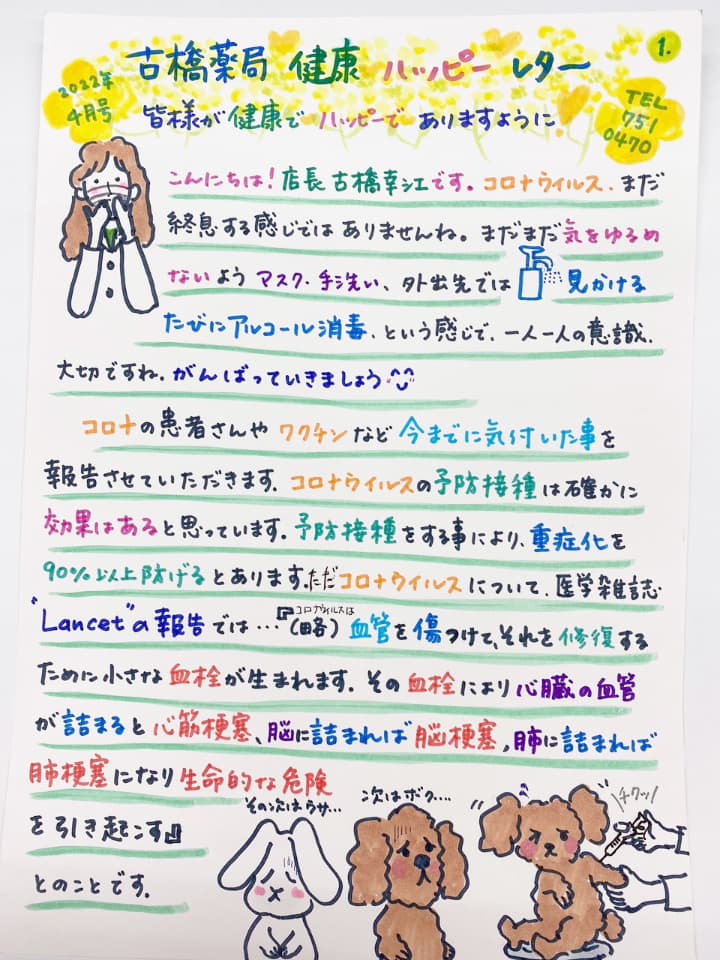 1.
古橋薬局 健康 ハッピー レター
2022年
4月号
TEL
751
0470
皆様が健康で ハッピーで ありますように
こんにちは！店長 古橋幸江です。コロナウイルス、まだ
終息する感じでは ありませんね。まだまだ気をゆるめ
ないよう マスク・手洗い、外出先では 見かける
たびにアルコール消毒、という感じで、一人一人の意識、
大切ですね。がんばっていきましょう^^
コロナの患者さんや ワクチンなど 今までに気付いた事を
報告させていただきます。コロナウイルスの予防接種は確かに
効果はあると思っています。予防接種をする事により、重症化を
90%以上防げるとあります。ただコロナウイルスについて、医学雑誌
"Lancet"の報告では…『(略)コロナウイルスは血管を傷つけて、それを修復する
ために小さな血栓が生まれます。その血栓により心臓の血管
が詰まると心筋梗塞、脳に詰まれば脳梗塞,肺に詰まれば
肺梗塞になり生命的な危険
を引き起こす』
とのことです。
その次はウサ…
次はボク….
チクッ